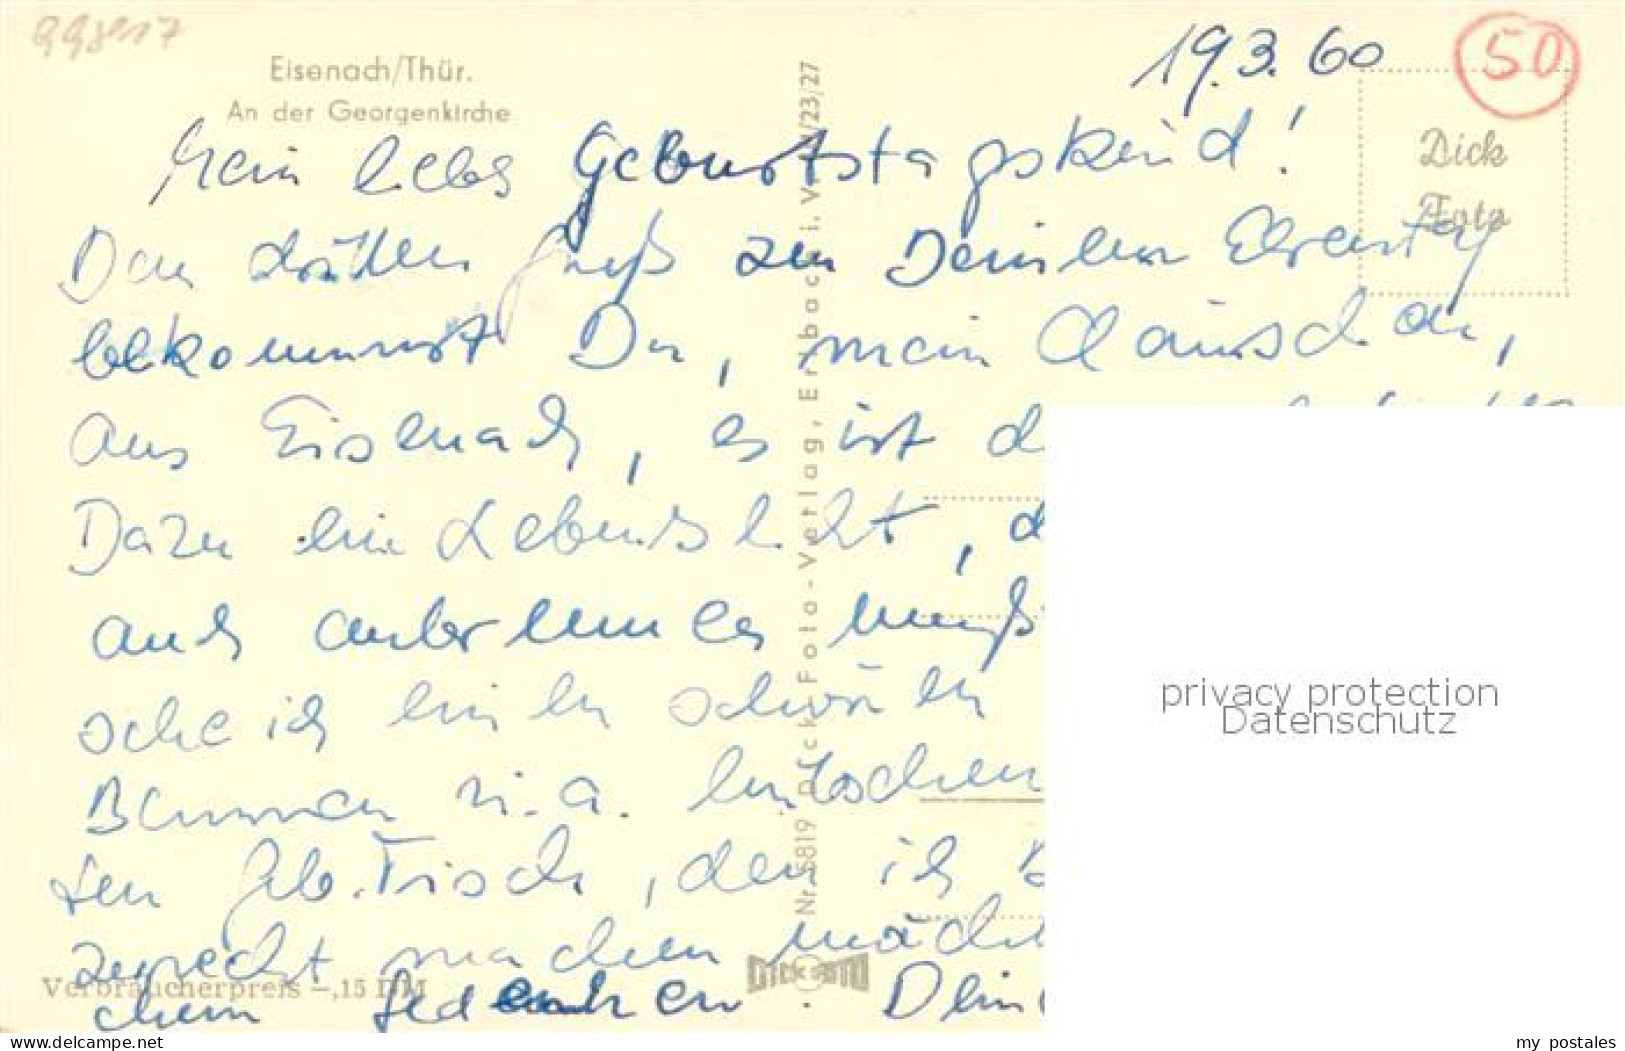 998917
19.3.60
50
Eisenach/Thür.
An der Georgenkirche
Dick
Foto
Mein liebes Geburtstagskind!
Den dritten Gruß zu Deinem Ehrentag
bekommst Du, mein Cläuschen,
aus Eisenach, es ist
Dazu ein Lebenslicht,
auch anbrennen muß
sehe ich einen schönen
Blumen u.a. hübschen
ten Geb. Tisch, den ich
zurecht machen möcht
chem Gedenken. Dein
Nr. 5819 Dick-Foto-Verlag, Erlbach i. V. 23/27
Verbraucherpreis -,15 DM
DICK FOTO
privacy protection
Datenschutz
delcampe.net
my_postales